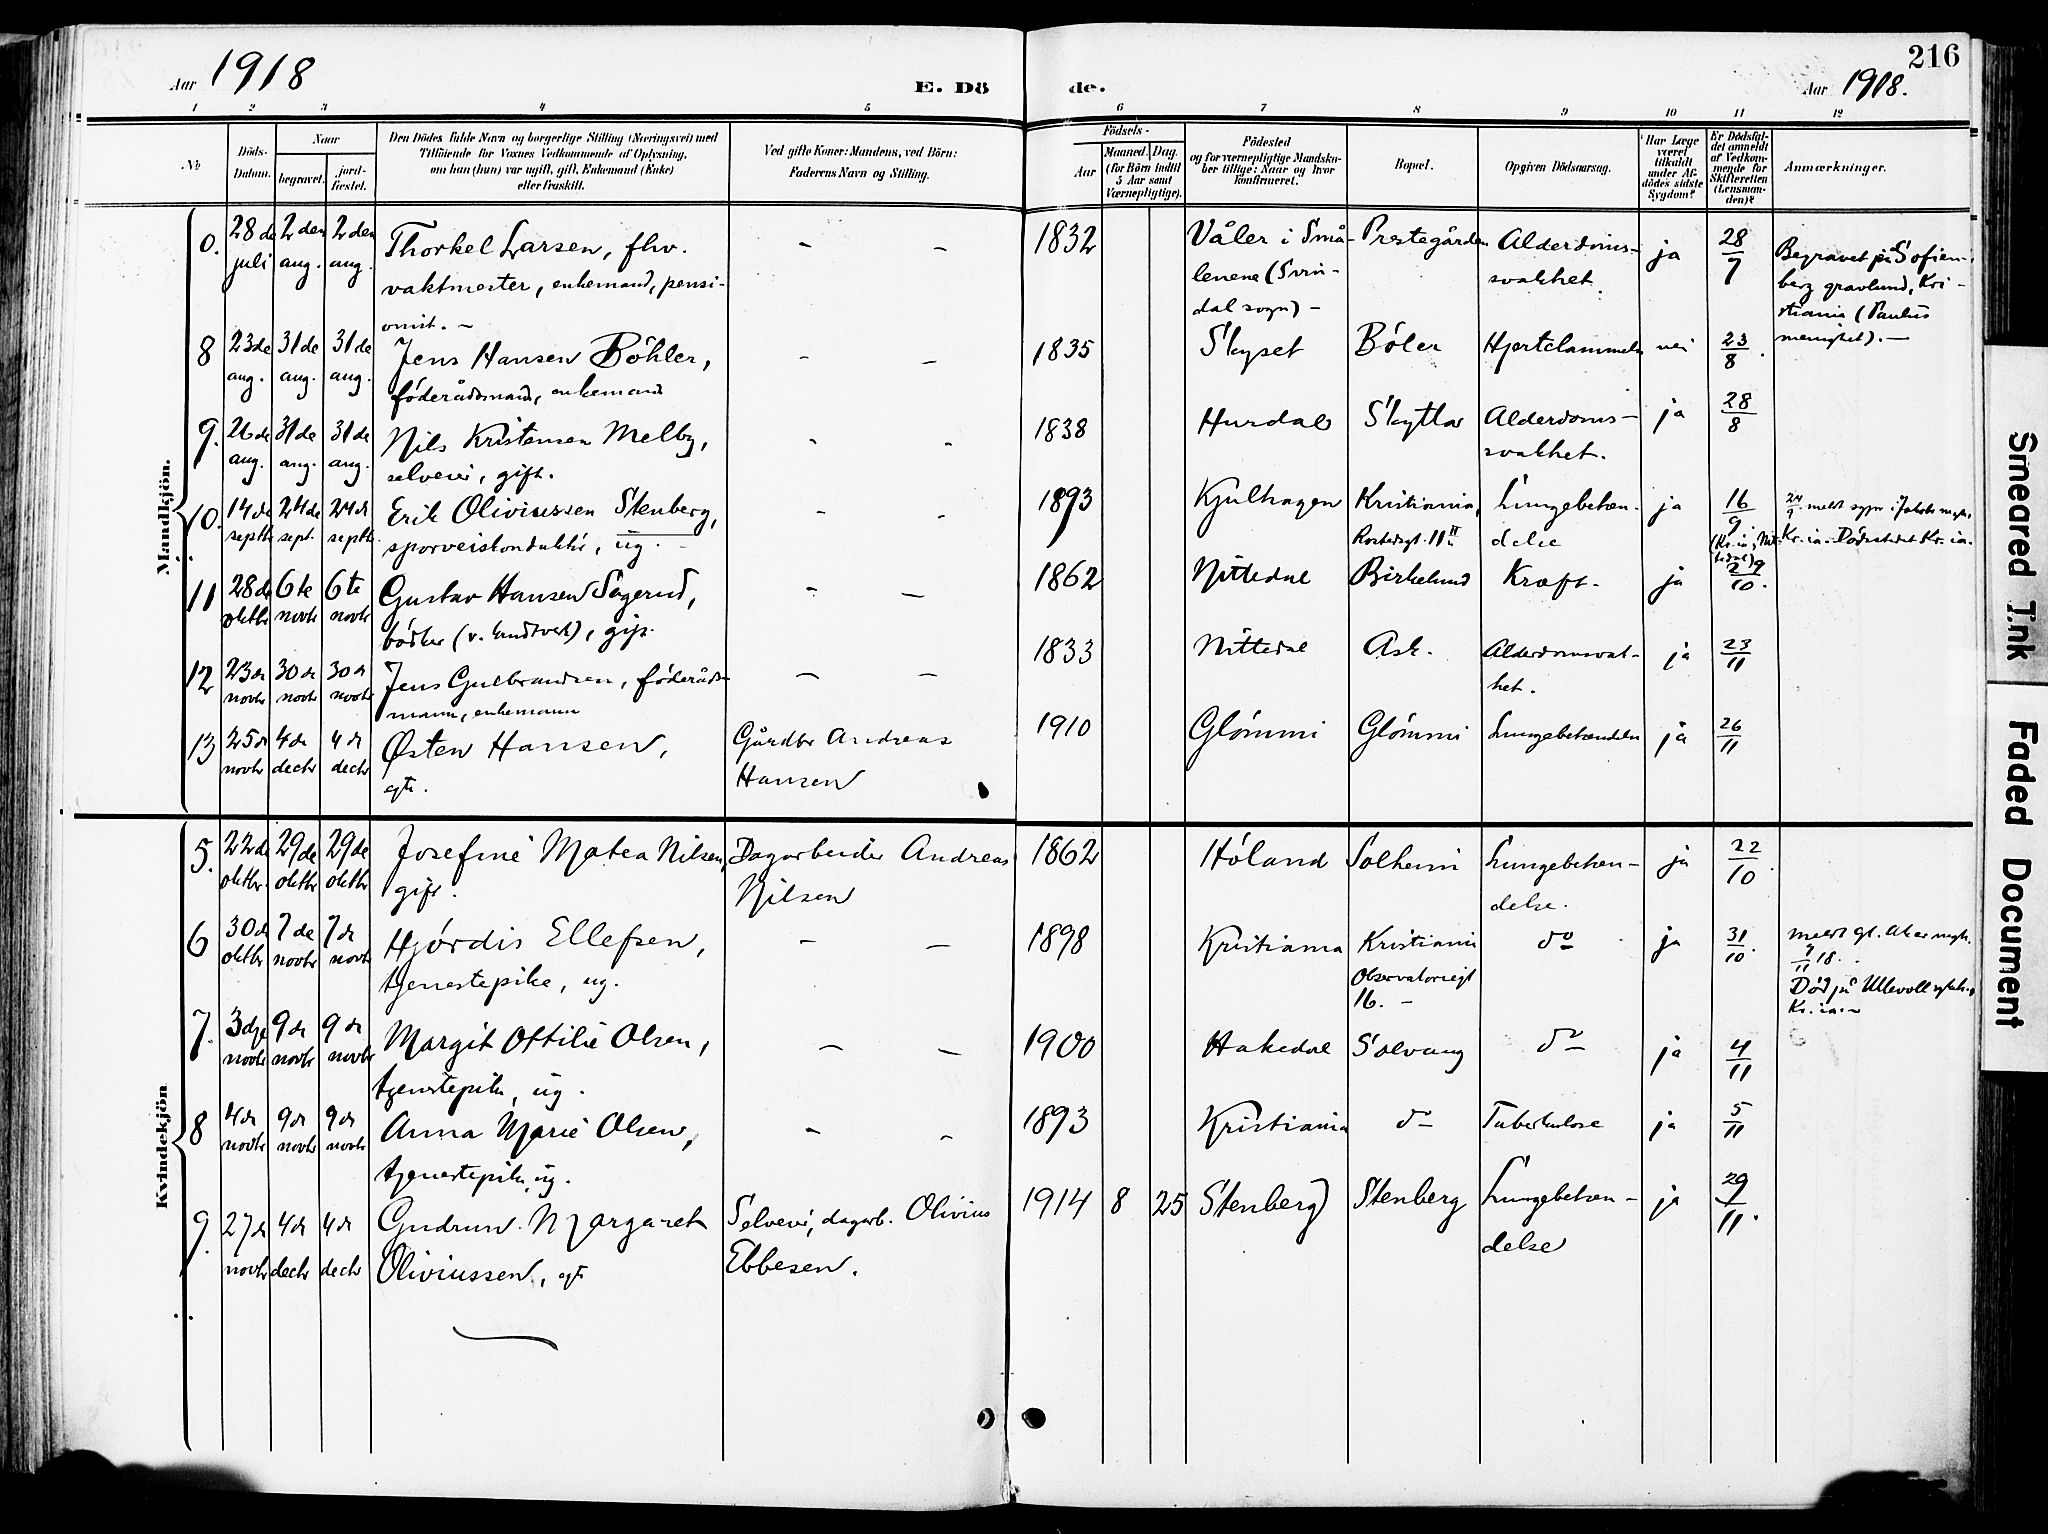 216
Aar 1918
E. Dö
de.
Aar 1918.
1 2 3 4 5 6 7 8 9 10 11 12
№
Döds-
Datum.
Naar
begravet.
jord-
fæstet.
Den Dödes fulde Navn og borgerlige Stilling (Næringsvei) med
Tilföiende for Voxnes Vedkommende af Oplysning,
om han (hun) var ugift, gift, Enkemand (Enke)
eller fraskilt.
Ved gifte Koner: Mandens, ved Börn:
Faderens Navn og Stilling.
Födsels-
Aar
Maaned. Dag.
(for Börn indtil
5 Aar samt
Værnepligtige).
Födested
og for værnepligtige Mandska-
ber tillige: Naar og hvor
konfirmeret.
Bopæl.
Opgiven Dödsaarsag.
Har Læge
været
tilkaldt
under Af-
dödes sidste
Sygdom?
Er Dödsfal-
det anmeldt
af Vedkom-
mende for
Skifteretten
(Lensman-
den)?
Anmærkninger.
Mandkjön.
0. 28de juli 2den aug. 2den aug.
Thorkel Larsen, fhv.
vaktmester, enkemand, pensi-
onist. –
– –
1832
Våler i Små-
lenene (Svin-
dal sogn) –
Prestegården
Alderdoms-
svakhet.
ja
28/7
Begravet på Sofien-
berg gravlund, Kri-
stiania (Paulus
menighet). –
8 23de aug. 31de aug. 31de aug.
Jens Hansen Böhler,
føderådsmand, enkemand
– –
1835
Skyset
Böler
Hjertelammelse
nei
23/8.
9. 26de aug. 31de aug. 31de aug.
Nils Kristensen Melby,
selveier, gift.
- -
1838
Hurdal
Skytta
Alderdoms-
svakhet.
ja
28/8
10. 14de septbr 24de sept. 24d septbr
Erik Oliviussen Stenberg,
sporveiskonduktør, ug.
- -
1893
Kjulhagen
Kristiania,
Rostedsgt. 11 II
Lungebetæn-
delse
ja
16/9
(Kr.ia, Nit-
tedal)
24/9 meldt sypr. i Jakobs mgh.,
Kr.ia. Dödsstedet Kr.ia.
11 28de oktbr 6te novbr 6te novbr
Gustav Hansen Sagerud,
bødker (v. landtverk), gift.
– –
1862
Nittedal
Birkelund
Kræft.
ja
29/10.
12 23de novbr 30de novbr 30de novbr
Jens Gulbrandsen, føderåds-
mann, enkemann
– –
1833
Nittedal
Ask.
Alderdomsvak-
het.
ja
23/11
13 25de novbr 4de decbr 4de decbr
Østen Hansen,
egte.
Gårdbr Andreas
Hansen
1910
Glömmi
Glömmi
Lungebetændelse
ja
26/11
Kvindekjön
5. 22de oktbr. 29de oktbr 29de oktbr
Josefine Matea Nilsen,
gift.
Dagarbeider Andreas
Nilsen
1862
Höland
Solheim
Lungebetæn-
delse.
ja
22/10.
6 30de oktbr 7de novbr 7de novbr
Hjördis Ellefsen,
tjenestepike, ug.
– –
1898
Kristiania
Kristiania
Observatoriegt
16. –
do
ja
31/10.
meldt gl. Aker mgh.
7/11 18.
Död på Ullevoll sykeh.,
Kr.ia. –
7. 3dje novbr 9de novbr 9de novbr
Margit Ottilie Olsen,
tjenestepike, ug.
– –
1900
Hakedal
Solvang
do
ja
4/11
8 4de novbr 9de novbr 9de novbr
Anna Marie Olsen,
tjenestepike, ug.
– -
1893
Kristiania
do
Tuberkulose
ja
5/11
9. 27de novbr 4de decbr 4de decbr
Gudrun Margaret
Oliviussen, egt
Selveier, dagarb. Olivius
Ebbesen.
1914 8 25
Stenberg
Stenberg
Lungebetæn-
delse
ja
29/11.
Smeared Ink
Faded Document